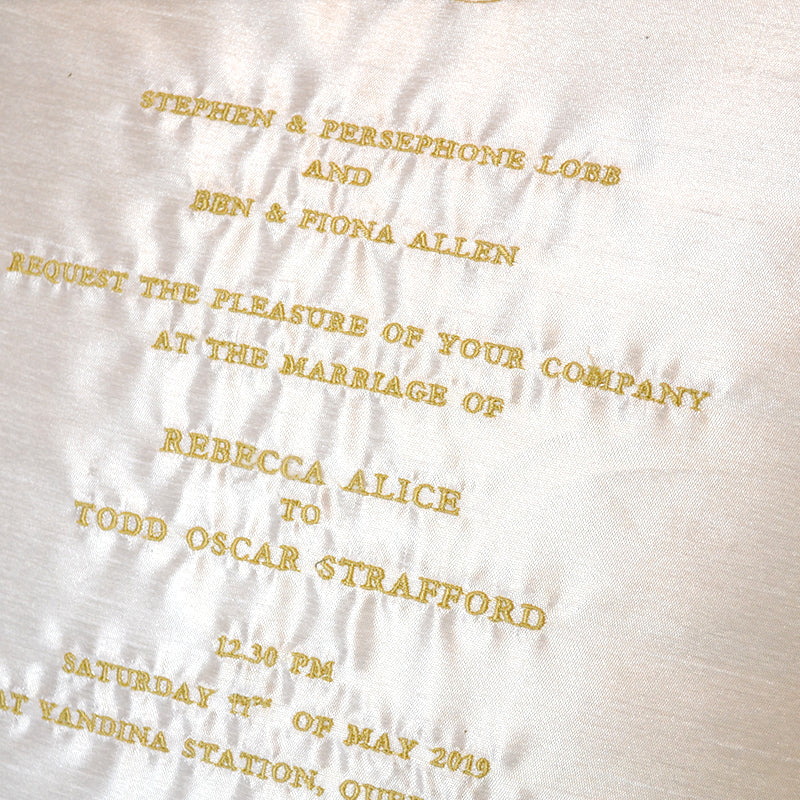 STEPHEN & PERSEPHONE LOBB
AND
BEN & FIONA ALLEN
REQUEST THE PLEASURE OF YOUR COMPANY
AT THE MARRIAGE OF
REBECCA ALICE
TO
TODD OSCAR STRAFFORD
12.30 PM
SATURDAY OF MAY 2019
AT YANDINA STATION,